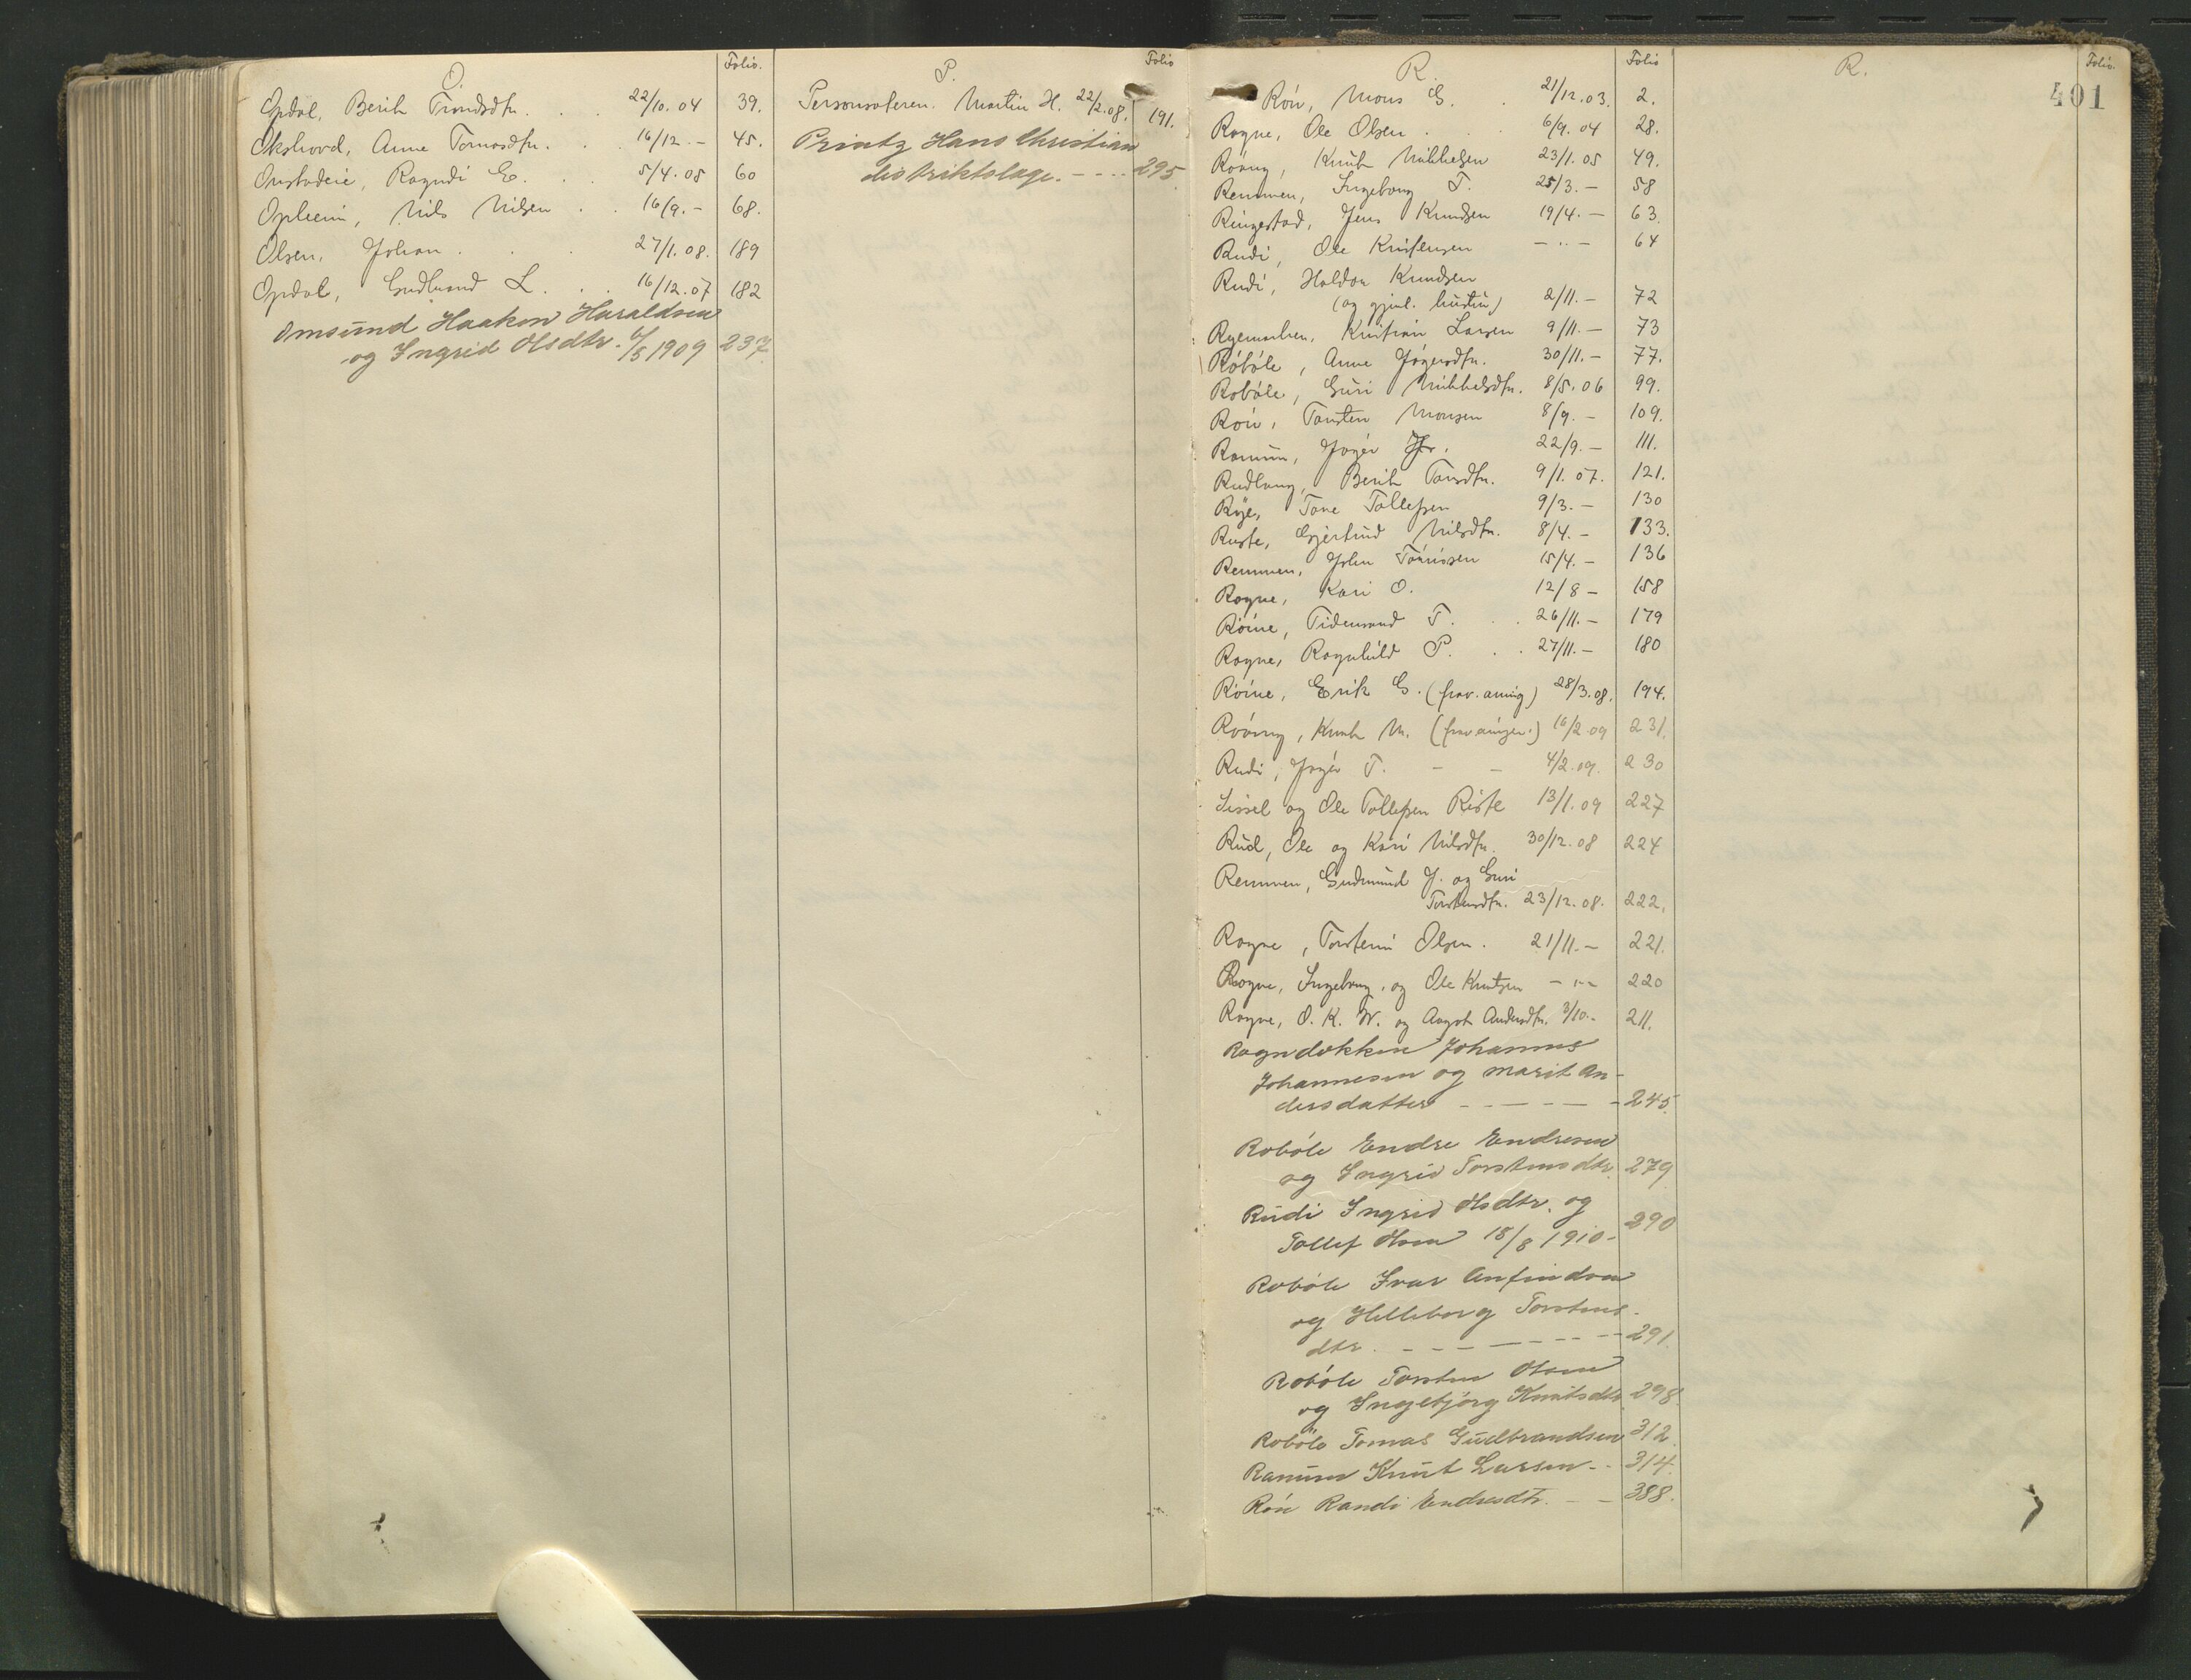 O.
Folio.
Opdal, Berit Trondsdtr. . . 22/10. 04 39.
Okshovd, Anne Tomasdtr. . . 16/12 .- 45.
Onstadeie, Ragndi E. . . 5/4. 05 60
Opheim, Nils Nilsen . . 16/9. - 68.
Olsen, Johan . . . 27/1. 08. 189
Opdal, Gudbrand L. . . 16/12. 07 182
Omsund Haakon Haraldsen
og Ingrid Olsdtr. 6/5 1909 237
P.
Folio
Personsæteren. Martin H. 22/2. 08. 191.
Printz Hans Christian
distriktslæge. - - - - 295
R.
Folio
Rön, Mons G. . 21/12. 03. 2.
Rogne, Ole Olsen . . . 6/9. 04 28.
Röang, Knut Mikkelsen 23/1. 05 49.
Remmen, Ingeborg T. 25/3. - 58
Ringestad, Jens Knudsen 19/4. - 63.
Rudi, Ole Kristensen - .. - 64
Rudi, Haldor Knudsen
(og gjenl. hustru) 2/11. - 72
Ryemarken, Kristian Larsen 9/11. - 73
Röböle, Anne Jögersdtr. 30/11. - 77.
Robøle, Guri Mikkelsdtr. 8/5. 06 99.
Rön, Torsten Monsen 8/9. - 109.
Ranum, Jögér Jr. 22/9. - 111.
Rudlang, Berit Torsdtr. 9/1. 07. 121.
Rye, Tore Tollefsen 9/3. - 130
Ruste, Gjertrud Nilsdtr. 8/4. - 133.
Remmen, John Tómósen 15/4. - 136
Rogne, Kari O. 12/8 - 158
Röine, Tidemand T. . . 26/11. - 179
Rogne, Ragnhild P. . . 27/11. - 180
Röine, Erik G. 28/3. 08. 194.
Röang, Knut M. 16/2. 09 231.
Rudi, Jögér T. - - 4/2. 09. 230
Sissel og Ole Tollefsen Riste 13/1. 09 227
Rud, Ole og Kari Nilsdtr. 30/12. 08 224
Remmen, Gudmund J. og Guri
Torstensdtr. 23/12. 08. 222.
Rogne, Torstein Olsen. 21/11. - 221.
Rogne, Ingeborg, og Ole Knutsen - .. - 220
Rogne, O. K. W. og Aagot Andersdtr. 3/10. - 211.
Rogndokken Johannes
Johannesen og Marit An-
dersdatter - - - - - - 245
Robøle Endre Endresen
og Ingrid Torstensdtr. 279
Rudi Ingrid Olsdtr. og
Tollef Olsen 18/8 1910 - 290
Robøle Ivar Anfindsen
og Helleborg Torstens-
dtr. - - - - - - - 291.
Robøle Torsten Olsen
og Ingebjörg Knutsdtr. 298.
Robøle Tomas Gudbrandsen 312
Ranum Knut Larsen - . 314.
Rön Randi Endresdtr. - - 388.
R.
Folio.
401